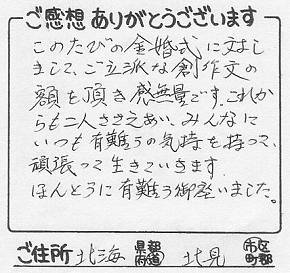 ご感想ありがとうございます
このたびの金婚式に対し
まして、ご立派な創作文の
額を頂き感無量です。これか
らも二人ささえあい、みんなに
いつも有難うの気持を持って、
頑張って生きていきます
ほんとうに有難う御座いました。
ご住所 北海 都道府県 北見 市区町郡